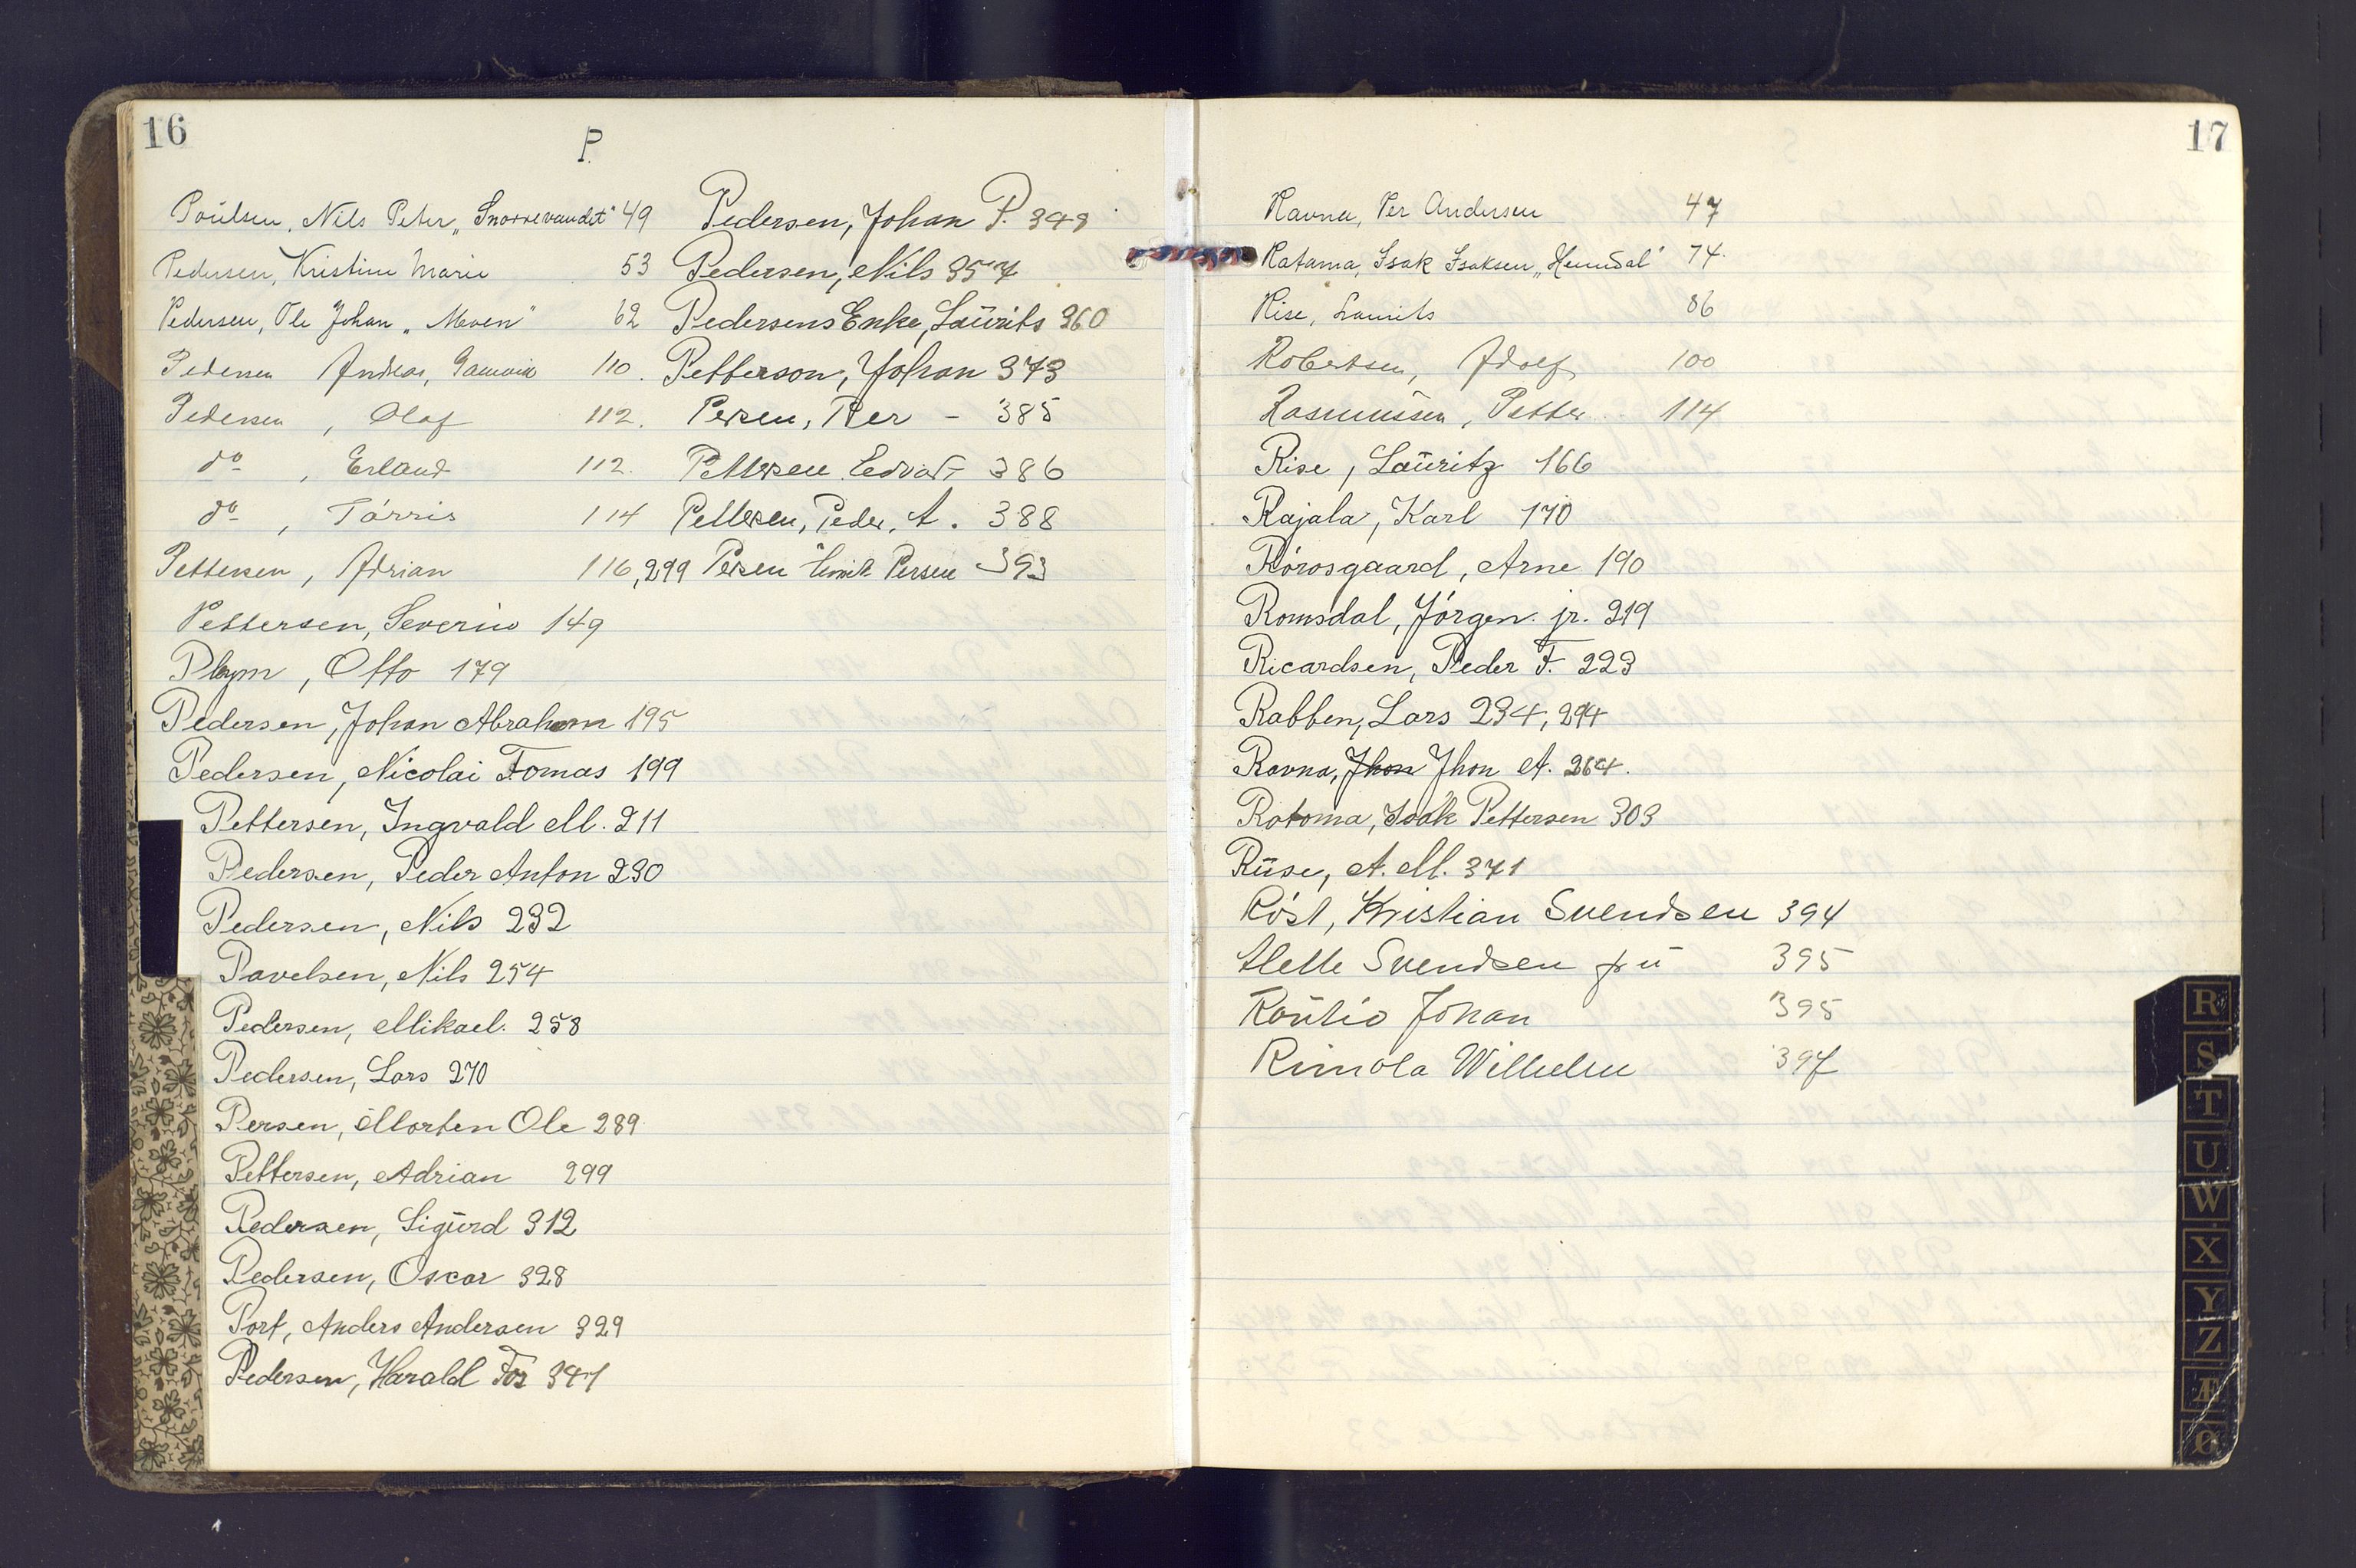 16
P.
Poulsen, Nils Peter „Snorrevandet" 49
Pedersen, Kristine Marie 53
Pedersen, Ole Johan „Moen" 62
Pedersen Andreas, Gamvik 110.
Pedersen, Olaf 112.
do, Erland 112.
do, Tórris 114
Pettersen, Adrian 116, 299
Pettersen, Severin 149
Pleym, Otto 179
Pedersen, Johan Abraham 195
Pedersen, Nicolai Tomas 199
Pettersen, Ingvald M. 211
Pedersen, Peder Anton 230
Pedersen, Nils 232
Pavelsen, Nils 254
Pedersen, Mikael. 258
Pedersen, Lars 270
Persen, Morten Ole 289
Pettersen, Adrian 299
Pedersen, Sigurd 312
Pedersen, Oscar 328
Port, Anders Andersen 329
Pedersen, Harald Fos 347
Pedersen, Johan P. 348
Pedersen, Nils 357
Pedersens Enke, Laurits 360
Petterson, Johan 373
Persen, Per - 385
Pettersen Edvart 386
Pettersen, Peder, A. 388
Persen Emil Persen 393
17
Ravna, Per Andersen 47
Ratama, Isak Isaksen „Heimdal" 74.
Rise, Laurits 86
Robertsen, Adolf 100
Rasmussen, Petter 114
Rise, Lauritz 166
Rajala, Karl 170
Rórosgaard, Arne 190
Romsdal, Jórgen jr. 219
Ricardsen, Peder F. 223
Rabben, Lars 234, 294
Ravna, Jhon Jhon A. 264.
Ratoma, Isak Pettersen 303
Ruse, A. M. 371
Róst, Kristian Svendsen 394
Svendsen fru 395
Routio Johan 395
Rimola Wilhelm 397
R
S
T
U
W
X
Y
Z
Æ
Ø